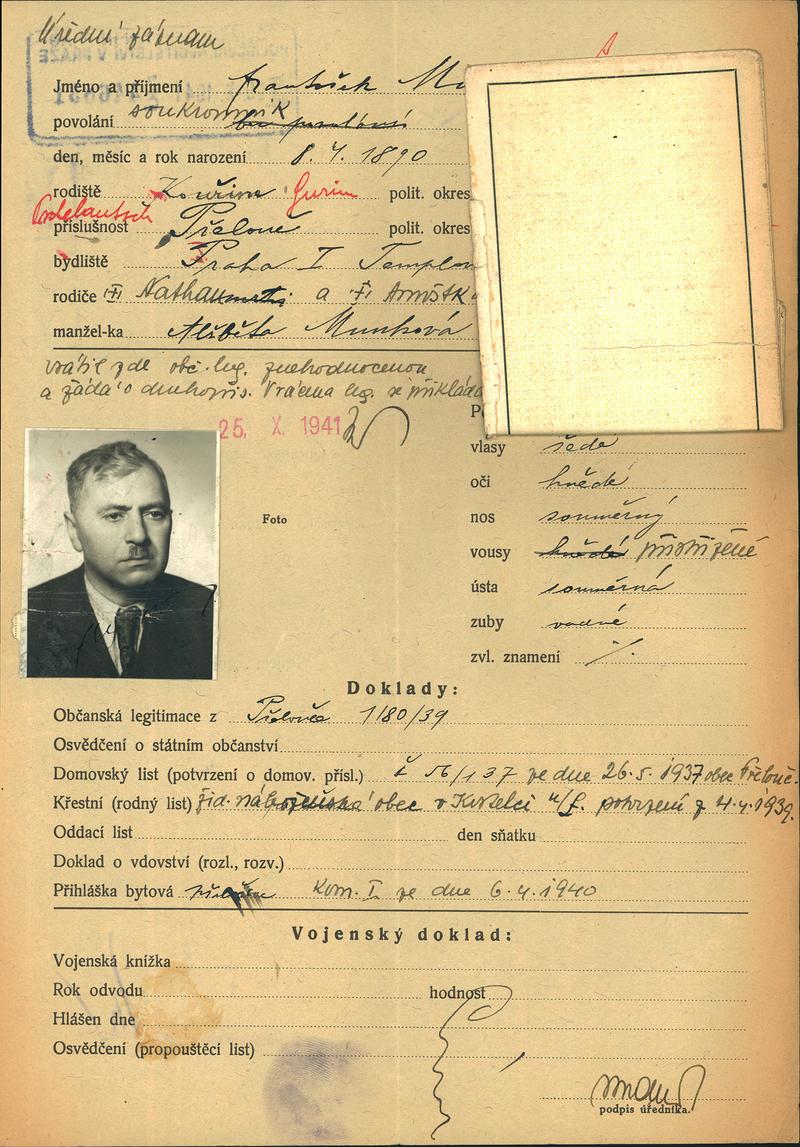 Úřední záznam
Jméno a příjmení František Mu
povolání soukromník
den, měsíc a rok narození 8. 4. 1890
rodiště Kouřim Gurim polit. okres
příslušnost Přelouč polit. okres
bydliště Praha I Templov
rodiče a Arnoštk
manžel-ka Alžběta Munková
vrátil zde obč. leg. znehodnocenou
a žádá o druhopis. Vrácena leg. se přikládá
25. X. 1941
vlasy šedé
oči hnědé
Foto
nos souměrný
vousy hnědé přistřižené
ústa souměrná
zuby vadné
zvl. znamení ./.
Doklady:
Občanská legitimace z Přelouče 1180/39
Osvědčení o státním občanství
Domovský list (potvrzení o domov. přísl.) ze dne 26.5.1937 obec Přelouč.
Křestní (rodný list) žid. náboženská obec v potvrzení z 4.4.1939.
Oddací list den sňatku
Doklad o vdovství (rozl., rozv.)
Přihláška bytová Kom. I ze dne 6.4.1940
Vojenský doklad:
Vojenská knížka
Rok odvodu hodnost
Hlášen dne
Osvědčení (propouštěcí list)
podpis úředníka.